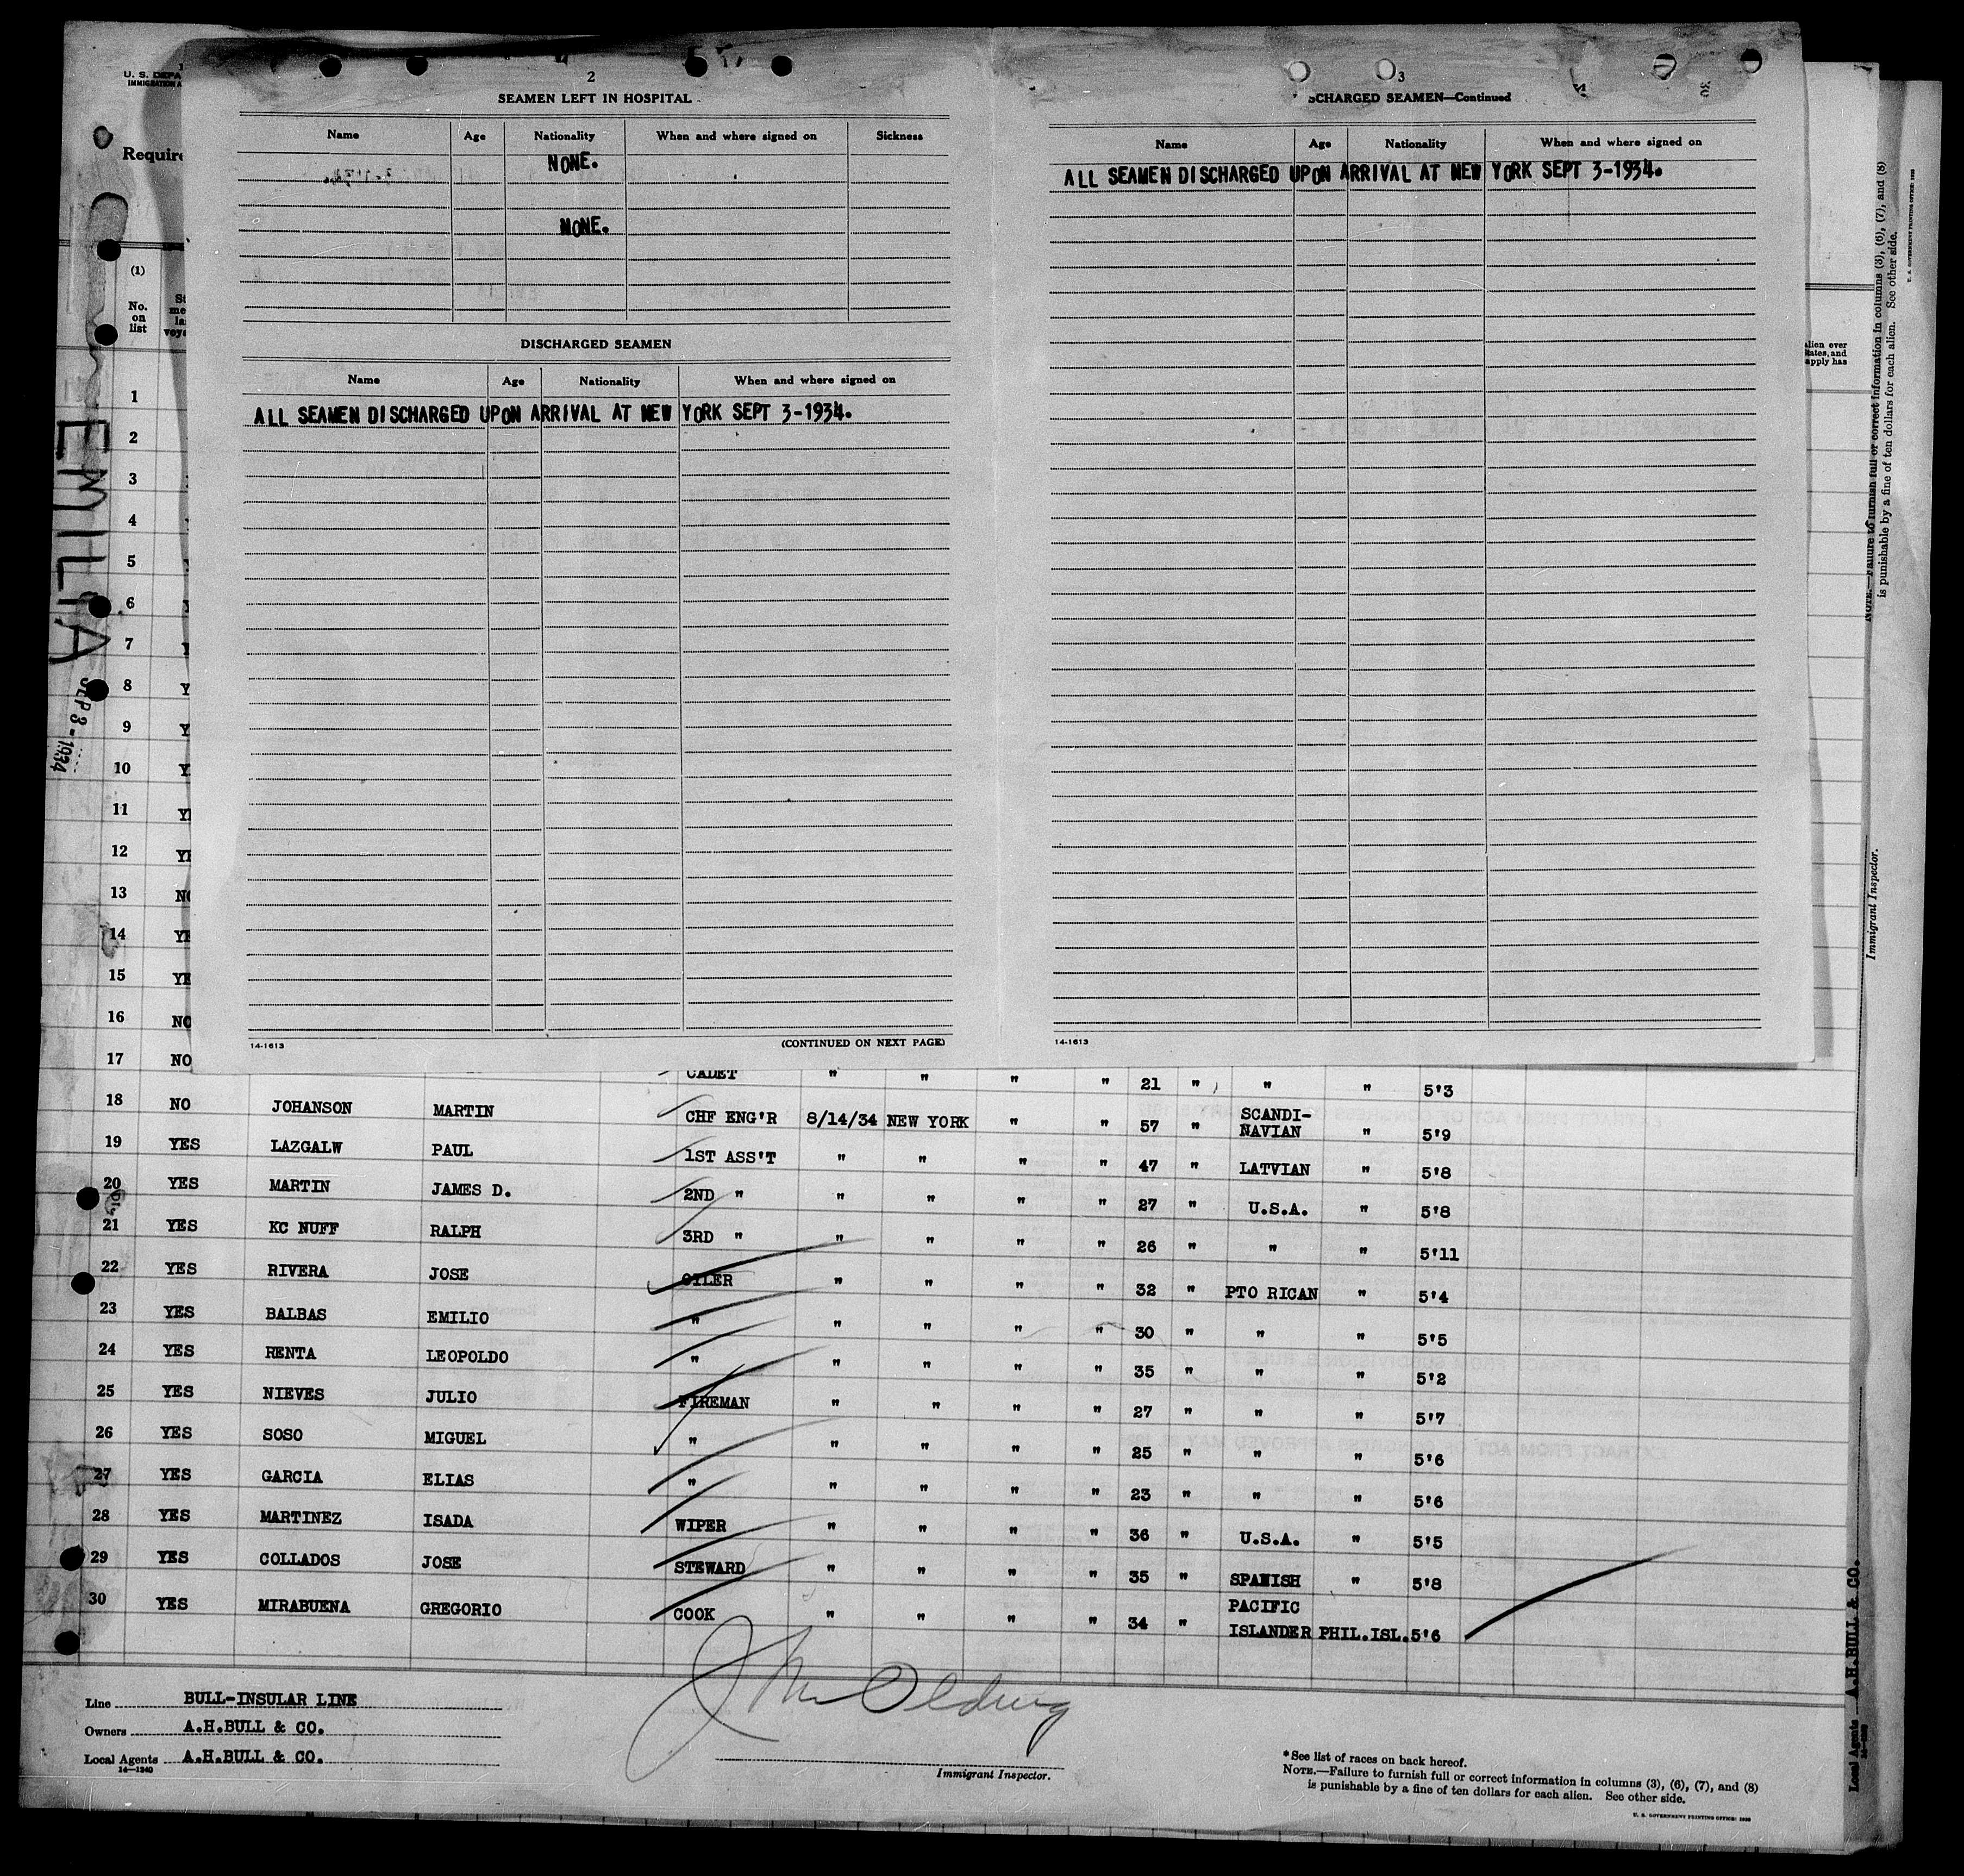 U. S. DEPA
IMMIGRATION A
Require
(1)
No.
on
list
2
SEAMEN LEFT IN HOSPITAL
Name Age Nationality When and where signed on Sickness
NONE.
NONE.
DISCHARGED SEAMEN
Name Age Nationality When and where signed on
ALL SEAMEN DISCHARGED UPON ARRIVAL AT NEW YORK SEPT 3-1934.
14-1613 (CONTINUED ON NEXT PAGE)
3
SCHARGED SEAMEN—Continued
Name Age Nationality When and where signed on
ALL SEAMEN DISCHARGED UPON ARRIVAL AT NEW YORK SEPT 3-1934.
14-1613
EMILIA
SEP 3 - 1934
1
2
3
4
5
6
7
8 Y
9 Y
10 Y
11 YE
12 YE
13 NO
14 YE
15 YE
16 NO
17 NO CADET " " " " 21 " " " 5'3
18 NO JOHANSON MARTIN CHF ENG'R 8/14/34 NEW YORK " " 57 " SCANDI-NAVIAN " 5'9
19 YES LAZGALW PAUL 1ST ASS'T " " " " 47 " LATVIAN " 5'8
20 YES MARTIN JAMES D. 2ND " " " " " 27 " U.S.A. " 5'8
21 YES KC NUFF RALPH 3RD " " " " " 26 " " " 5'11
22 YES RIVERA JOSE OILER " " " " 32 " PTO RICAN " 5'4
23 YES BALBAS EMILIO " " " " " 30 " " " 5'5
24 YES RENTA LEOPOLDO " " " " " 35 " " " 5'2
25 YES NIEVES JULIO FIREMAN " " " " 27 " " " 5'7
26 YES SOSO MIGUEL " " " " " 25 " " " 5'6
27 YES GARCIA ELIAS " " " " " 23 " " " 5'6
28 YES MARTINEZ ISADA WIPER " " " " 36 " U.S.A. " 5'5
29 YES COLLADOS JOSE STEWARD " " " " 35 " SPANISH " 5'8
30 YES MIRABUENA GREGORIO COOK " " " " 34 " PACIFIC ISLANDER PHIL.ISL. 5'6
Line BULL-INSULAR LINE
Owners A.H.BULL & CO.
Local Agents A.H.BULL & CO.
14—1240
Immigrant Inspector.
*See list of races on back hereof.
NOTE.—Failure to furnish full or correct information in columns (3), (6), (7), and (8)
is punishable by a fine of ten dollars for each alien. See other side.
alien ever
States, and
apply has
NOTE.—Failure to furnish full or correct information in columns (3), (6), (7), and (8)
is punishable by a fine of ten dollars for each alien. See other side.
Immigrant Inspector.
Local Agents A.H.BULL & CO.